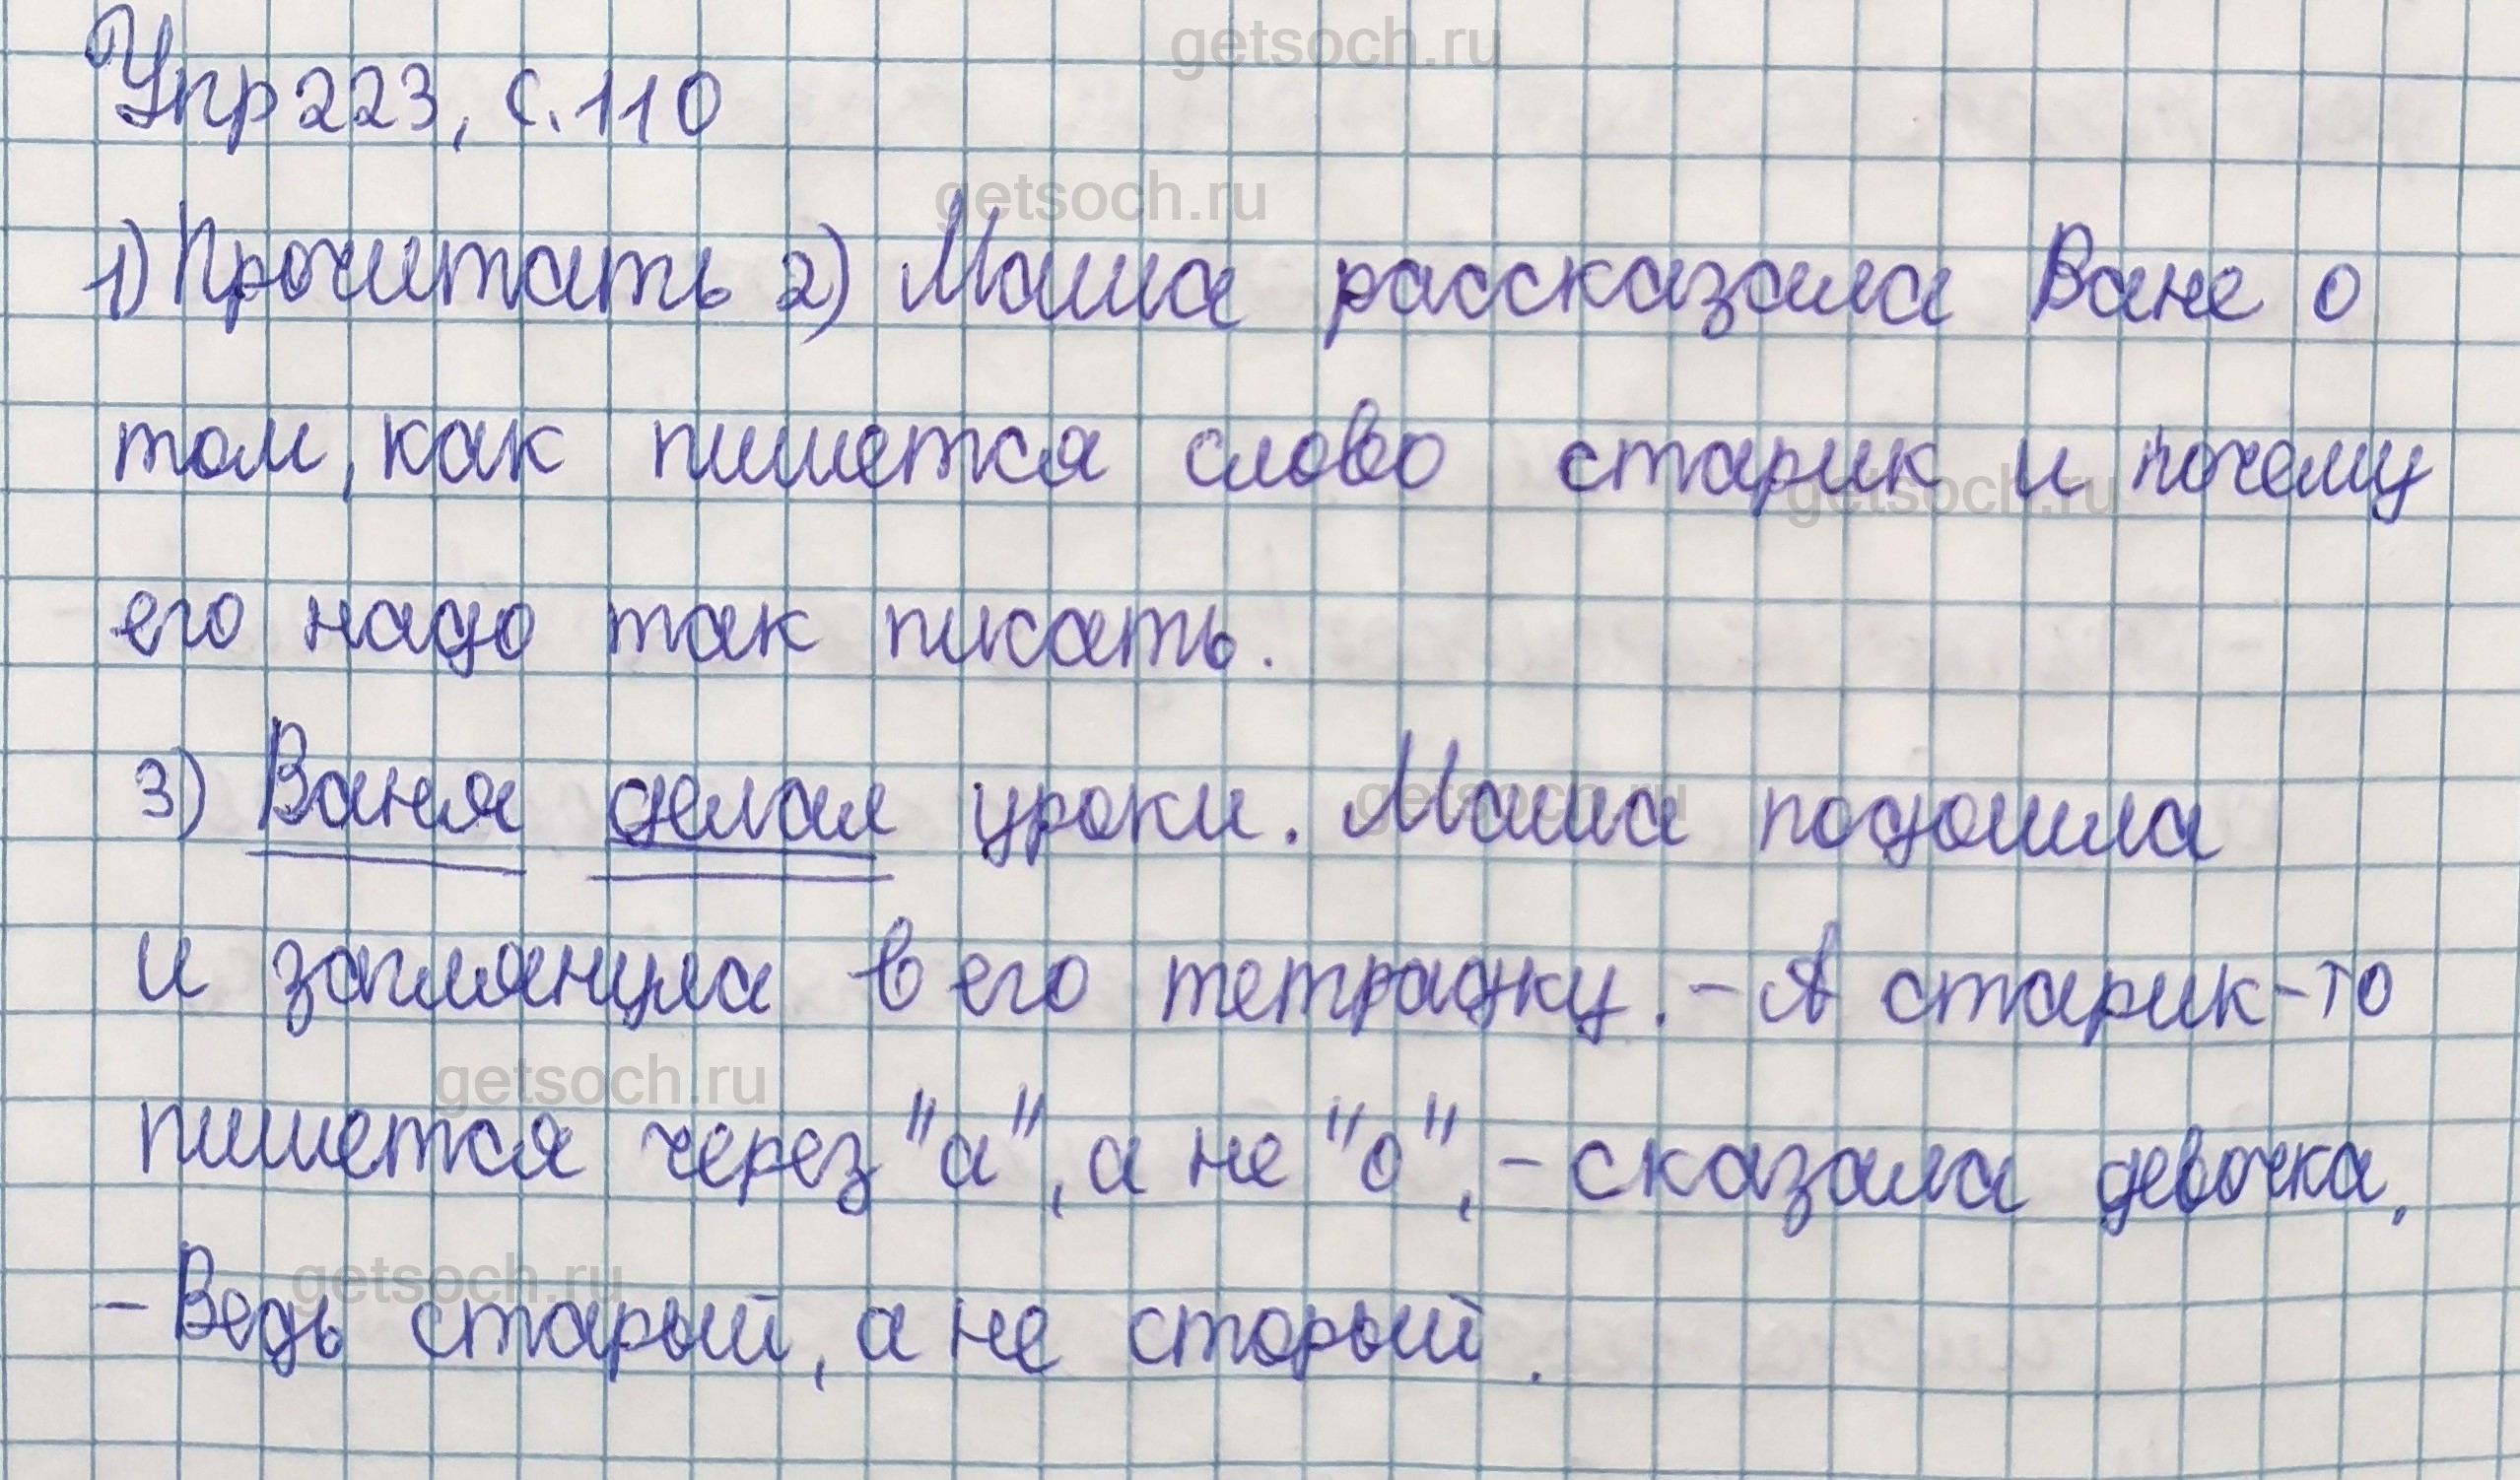 getsoch.ru
Упр 223, с. 110
getsoch.ru
1) Прочитать 2) Маша рассказала Ване о
том, как пишется слово старик и почему
getsoch.ru
его надо так писать.
3) Ваня делал уроки. Маша подошла
getsoch.ru
и заглянула в его тетрадку. - А старик-то
getsoch.ru
пишется через "а", а не "о", - сказала девочка,
getsoch.ru
- Ведь старый, а не сторый.